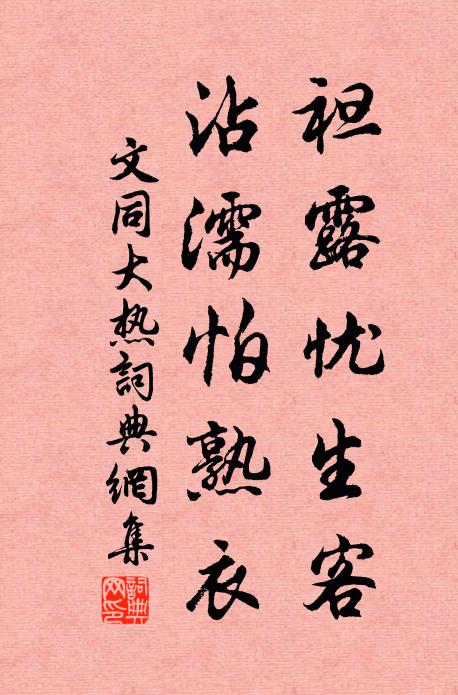 袒露忧生客
沾濡怕熟衣
文同大热詞典網集
詞典网印